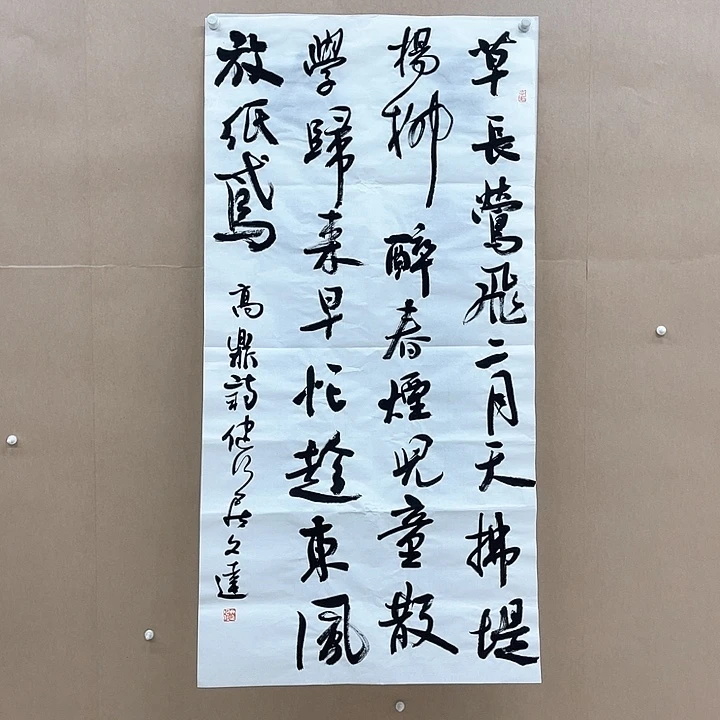 草長鶯飛二月天拂堤
楊柳醉春煙兒童散
學歸來早忙趁東風
放紙鳶
高鼎詩